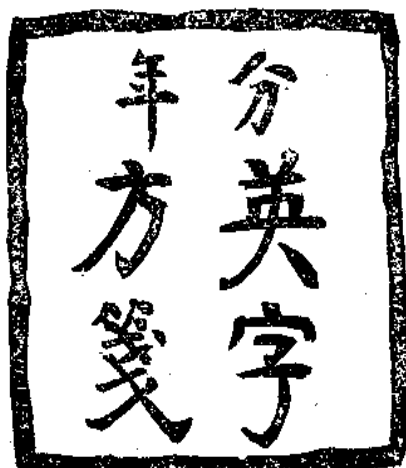 分英字
年方箋